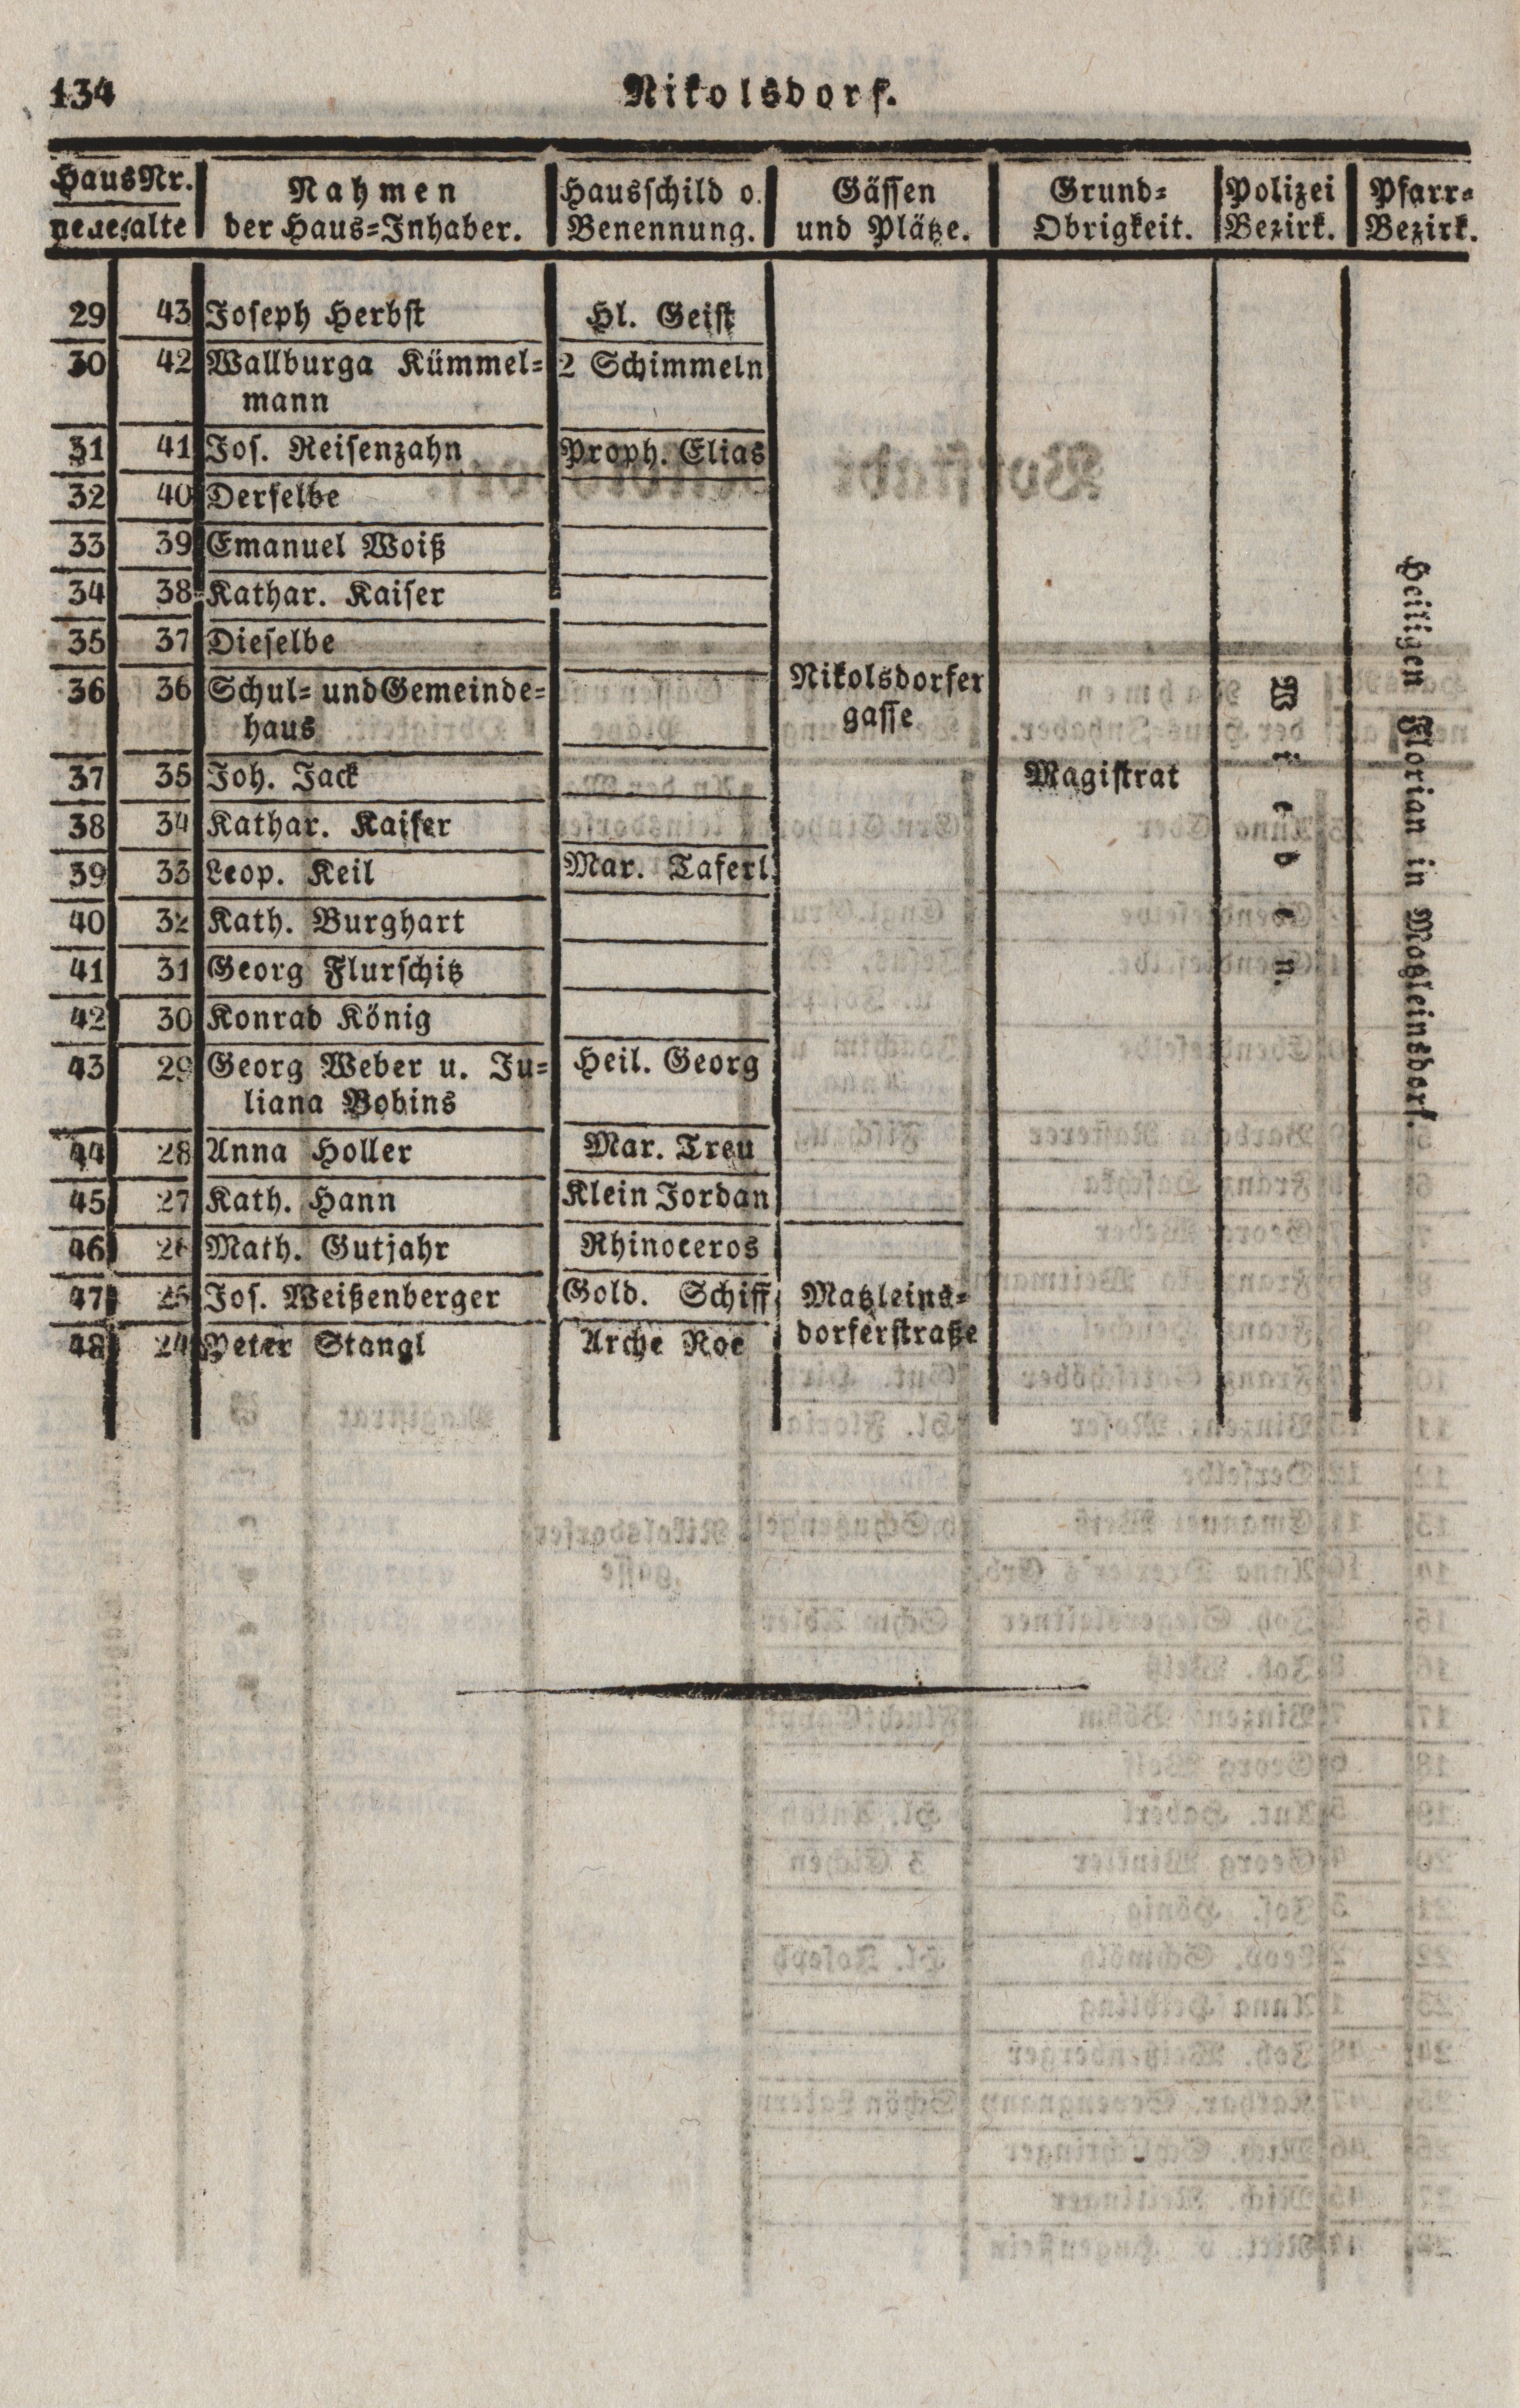 134
Nikolsdorf.
Haus Nr. | Nahmen | Hausschild o. | Gässen | Grund= | Polizei | Pfarr=
neue alte | der Haus=Inhaber. | Benennung. | und Plätze. | Obrigkeit. | Bezirk. | Bezirk.
29 43 Joseph Herbst Hl. Geist
30 42 Wallburga Kümmel= 2 Schimmeln
mann
31 41 Jos. Reisenzahn Proph. Elias
32 40 Derselbe
33 39 Emanuel Woiß
34 38 Kathar. Kaiser
35 37 Dieselbe
36 36 Schul= und Gemeinde= Nikolsdorfer
haus gasse
37 35 Joh. Jack Magistrat
38 34 Kathar. Kaiser
39 33 Leop. Keil Mar. Taferl
40 32 Kath. Burghart
41 31 Georg Flurschitz
42 30 Konrad König
43 29 Georg Weber u. Ju= Heil. Georg
liana Bobins
44 28 Anna Holler Mar. Treu
45 27 Kath. Hann Klein Jordan
46 26 Math. Gutjahr Rhinoceros
47 25 Jos. Weißenberger Gold. Schiff Matzleins=
48 24 Peter Stangl Arche Noe dorferstraße
Wieden.
Heiligen Florian in Matzleinsdorf.